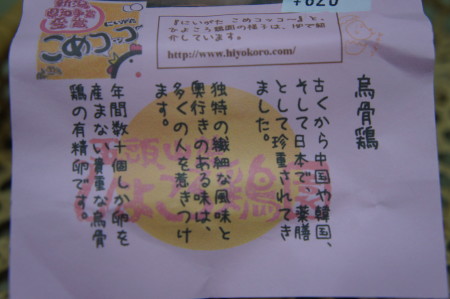 ¥620
にいがた
こめコッコ
『にいがた こめコッコー』と、
ひよころ鶏園の様子は、HPで紹
介しています。
http://www.hiyokoro.com/
烏骨鶏
古くから中国や韓国、
そして日本で、薬膳
として珍重されてき
ました。
独特の繊細な風味と
奥行きのある味は、
多くの人を惹きつけ
ます。
年間数十個しか卵を
産まない貴重な烏骨
鶏の有精卵です。